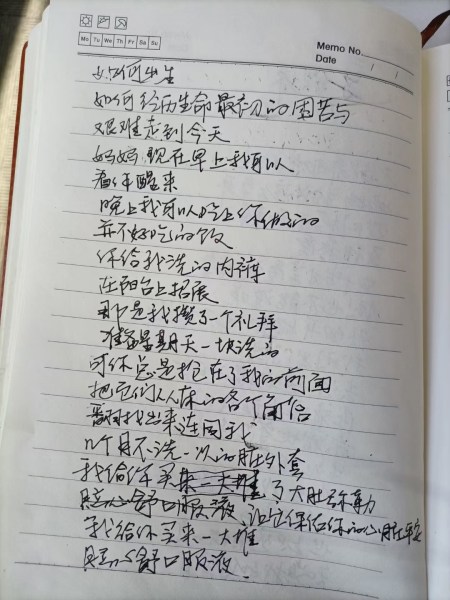 Mo Tu We Th Fr Sa Su
Memo No.
Date / /
如何出生
如何经历生命最初的困苦与
艰难走到今天
妈妈 现在早上我可以
看你醒来
晚上我可以吃上你做的
并不好吃的饭
你给我洗的内裤
在阳台上招展
那是我攒了一个礼拜
准备星期天一块洗的
可你总是抢在了我的前面
把它们从床的各个角落
翻找出来连同我
几个月不洗一次的脏外套
我给你买
了大
舒口服液
我给你买来一大堆
舒口服液